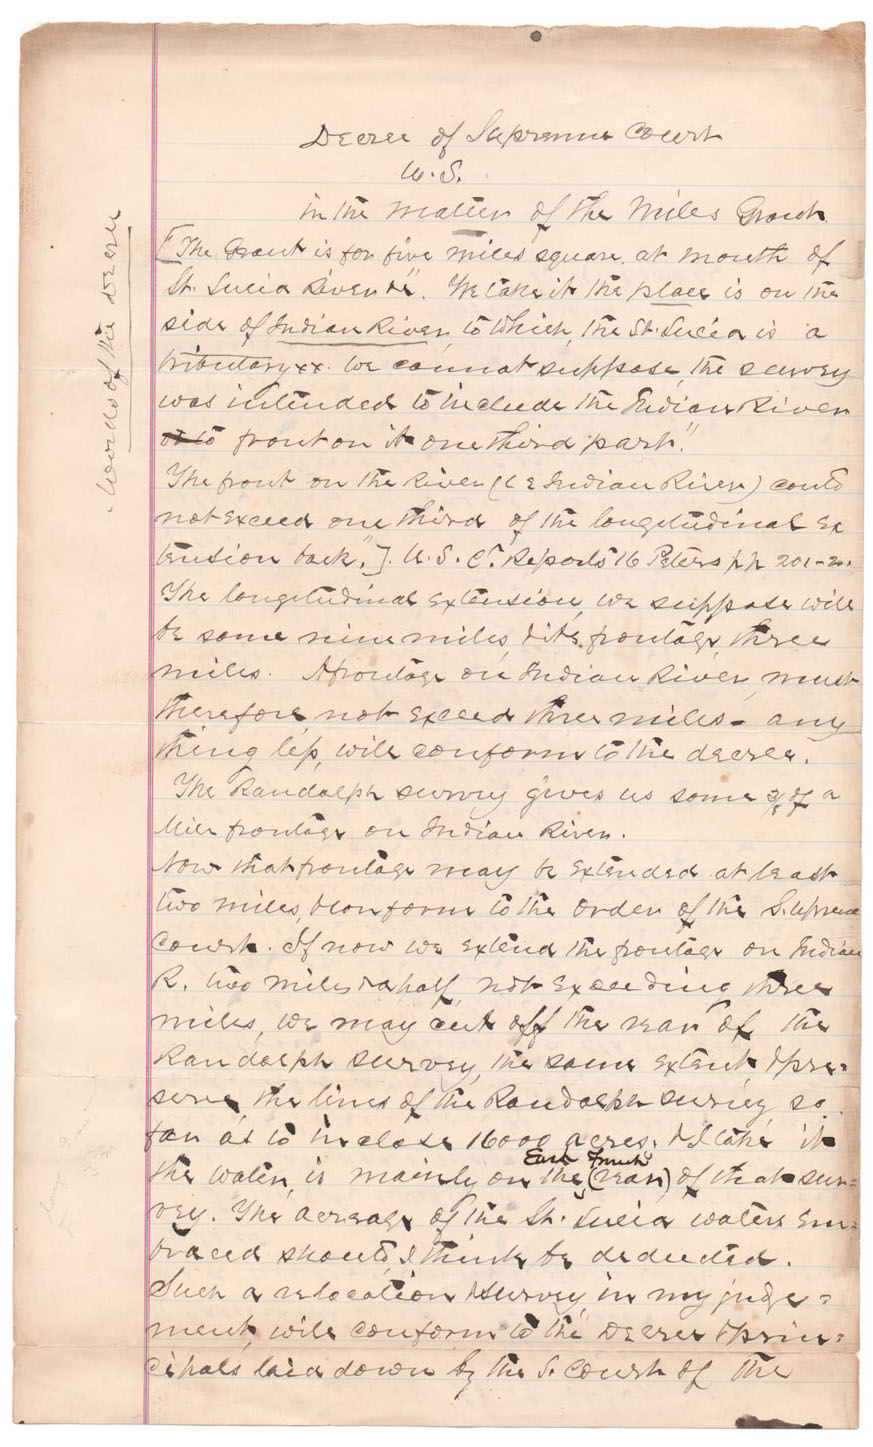 Decree of Supreme Court
U.S.
in the matter of the Miles Grant
[The Grant is for five miles square, at mouth of
St. Lucia River &c". We take it the place is on the
side of Indian River, to which, the St. Lucia is a
tributary xx. We cannot suppose, the survey
was intended to include the Indian River
or to front on it one third part."
The front on the River (i e Indian River) could
not exceed one third of the longitudinal ex
tension back,"]. U.S. Ct. Reports 16 Peters pp 201-2.
The longitudinal extension, we suppose will
be some nine miles, & its frontage, three
miles. A frontage on Indian River, must
therefore not exceed three miles - any
thing less, will conform to the decree.
The Randolph survey gives us some 3/8 of a
Mile frontage on Indian River.
Now that frontage may be extended at least
two miles, & conform to the order of the Supreme
Court. If now we extend the frontage on Indian
R. two miles & a half, not exceeding three
miles, we may cut off the rear of the
Randolph survey, the same extent, & pre=
serve, the lines of the Randolph survey, so
far as to inclose 16000 acres. & I take it
East Front
the water, is mainly on the (rear) of that sur=
vey. The acreage of the St. Lucia waters em=
braced should, I think be deducted.
Such a relocation & survey, in my judge=
ment, will conform to the Decree & prin=
cipals laid down by the S. Court of the
Words of the Decree